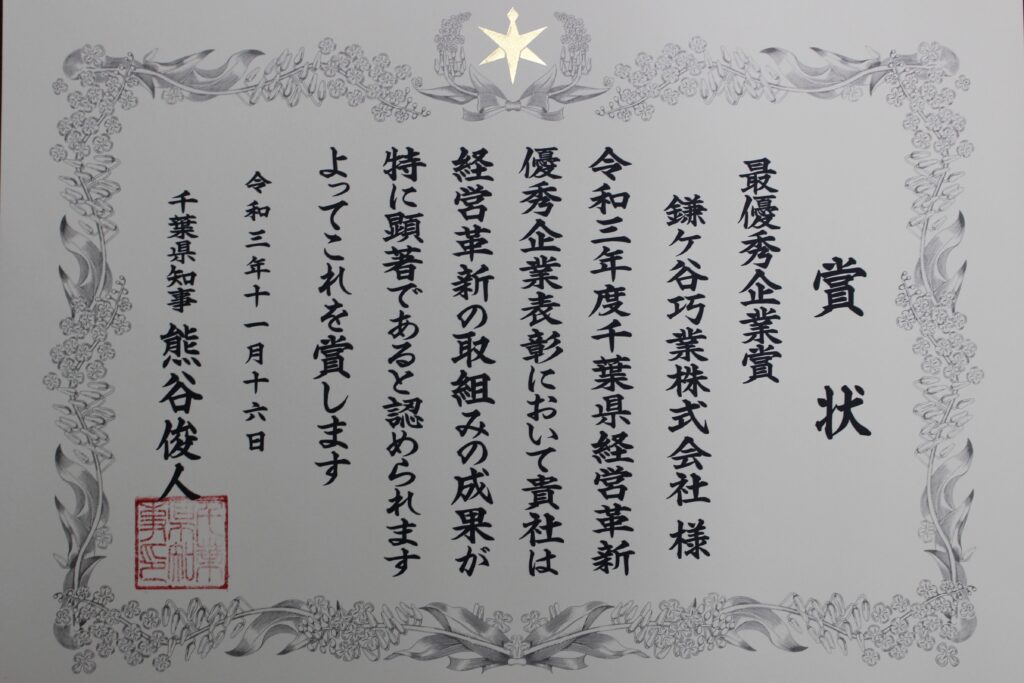 賞状
最優秀企業賞
鎌ケ谷巧業株式会社 様
令和三年度千葉県経営革新
優秀企業表彰において貴社は
経営革新の取組みの成果が
特に顕著であると認められます
よってこれを賞します
令和三年十一月十六日
千葉県知事 熊谷俊人
千葉県知事印